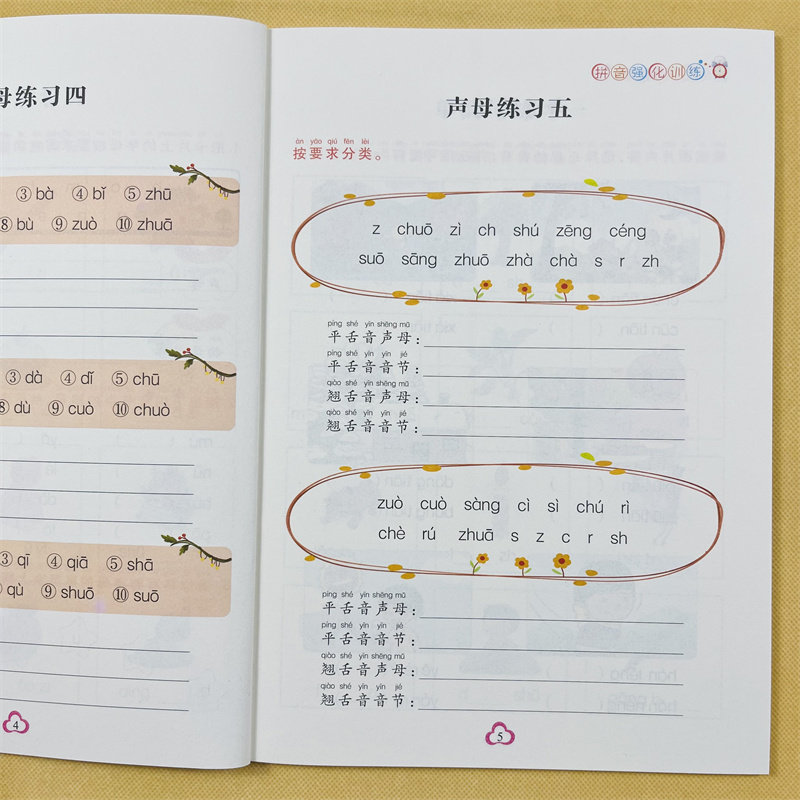 母练习四
③ bà ④ bǐ ⑤ zhū
⑧ bù ⑨ zuò ⑩ zhuā
③ dà ④ dǐ ⑤ chū
⑧ dù ⑨ cuò ⑩ chuò
③ qī ④ qiā ⑤ shā
qù ⑨ shuō ⑩ suō
4
拼音强化训练
声母练习五
àn yāo qiú fēn lèi
按要求分类。
z chuō zì ch shú zēng céng
suō sāng zhuō zhà chà s r zh
píng shé yīn shēng mǔ
平舌音声母:
píng shé yīn yīn jié
平舌音音节:
qiào shé yīn shēng mǔ
翘舌音声母:
qiào shé yīn yīn jié
翘舌音音节:
zuò cuò sàng cì sì chú rì
chè rú zhuā s z c r sh
píng shé yīn shēng mǔ
平舌音声母:
píng shé yīn yīn jié
平舌音音节:
qiào shé yīn shēng mǔ
翘舌音声母:
qiào shé yīn yīn jié
翘舌音音节:
5